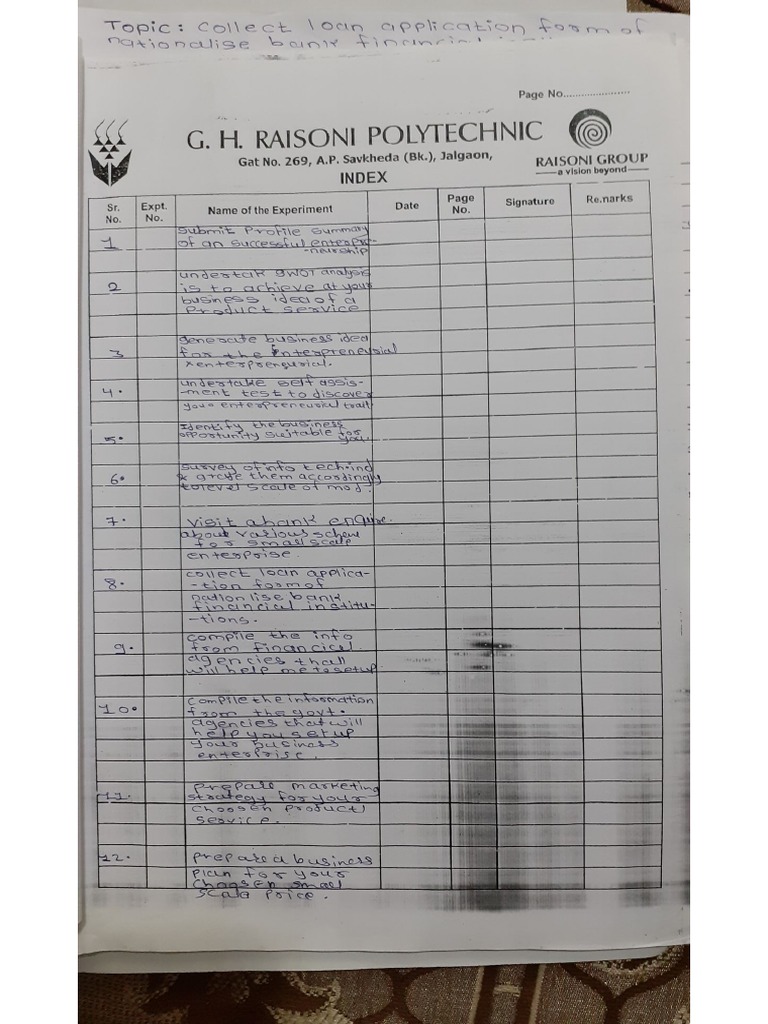 Topic: collect loan application form of
nationalise bank financial
Page No.....................
G. H. RAISONI POLYTECHNIC
Gat No. 269, A.P. Savkheda (Bk.), Jalgaon,
RAISONI GROUP
a vision beyond
INDEX
Sr. No. Expt. No. Name of the Experiment Date Page No. Signature Remarks
1 submit Profile summary
of an successful enterpre-
-neurship
2 undertak SWOT analysis
is to achieve at your
business idea of a
Product service
3 generate business idea
for the Enterpreneurial
enterpreneurial.
4. undertake self assis-
-ment test to discover
your enterpreneurial trait
5. Identify the business
opportunity suitable for
you.
6. survey of info tech.ind
& them accordingly
to level scale of
7. visit a bank enquire
about various scheme
for small scale
enterprise.
8. collect loan applica-
-tion form of
nationlise bank
financial institu-
-tions.
9. compile the info
from financial
agencies that
will help me to setup
10. compile the information
from the govt.
agencies that will
help you setup
your business
enterprise.
11. prepare marketing
strategy for your
choosen product/
service.
12. prepare a business
plan for your
choosen small
scala price.